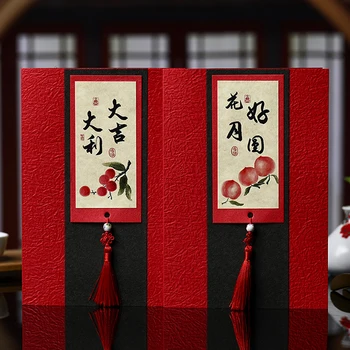 大吉
大利
花好
月圆